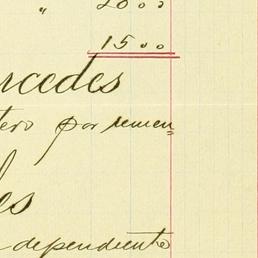 " 20 00
15 00
rcedes
tero por remen
es
dependiente